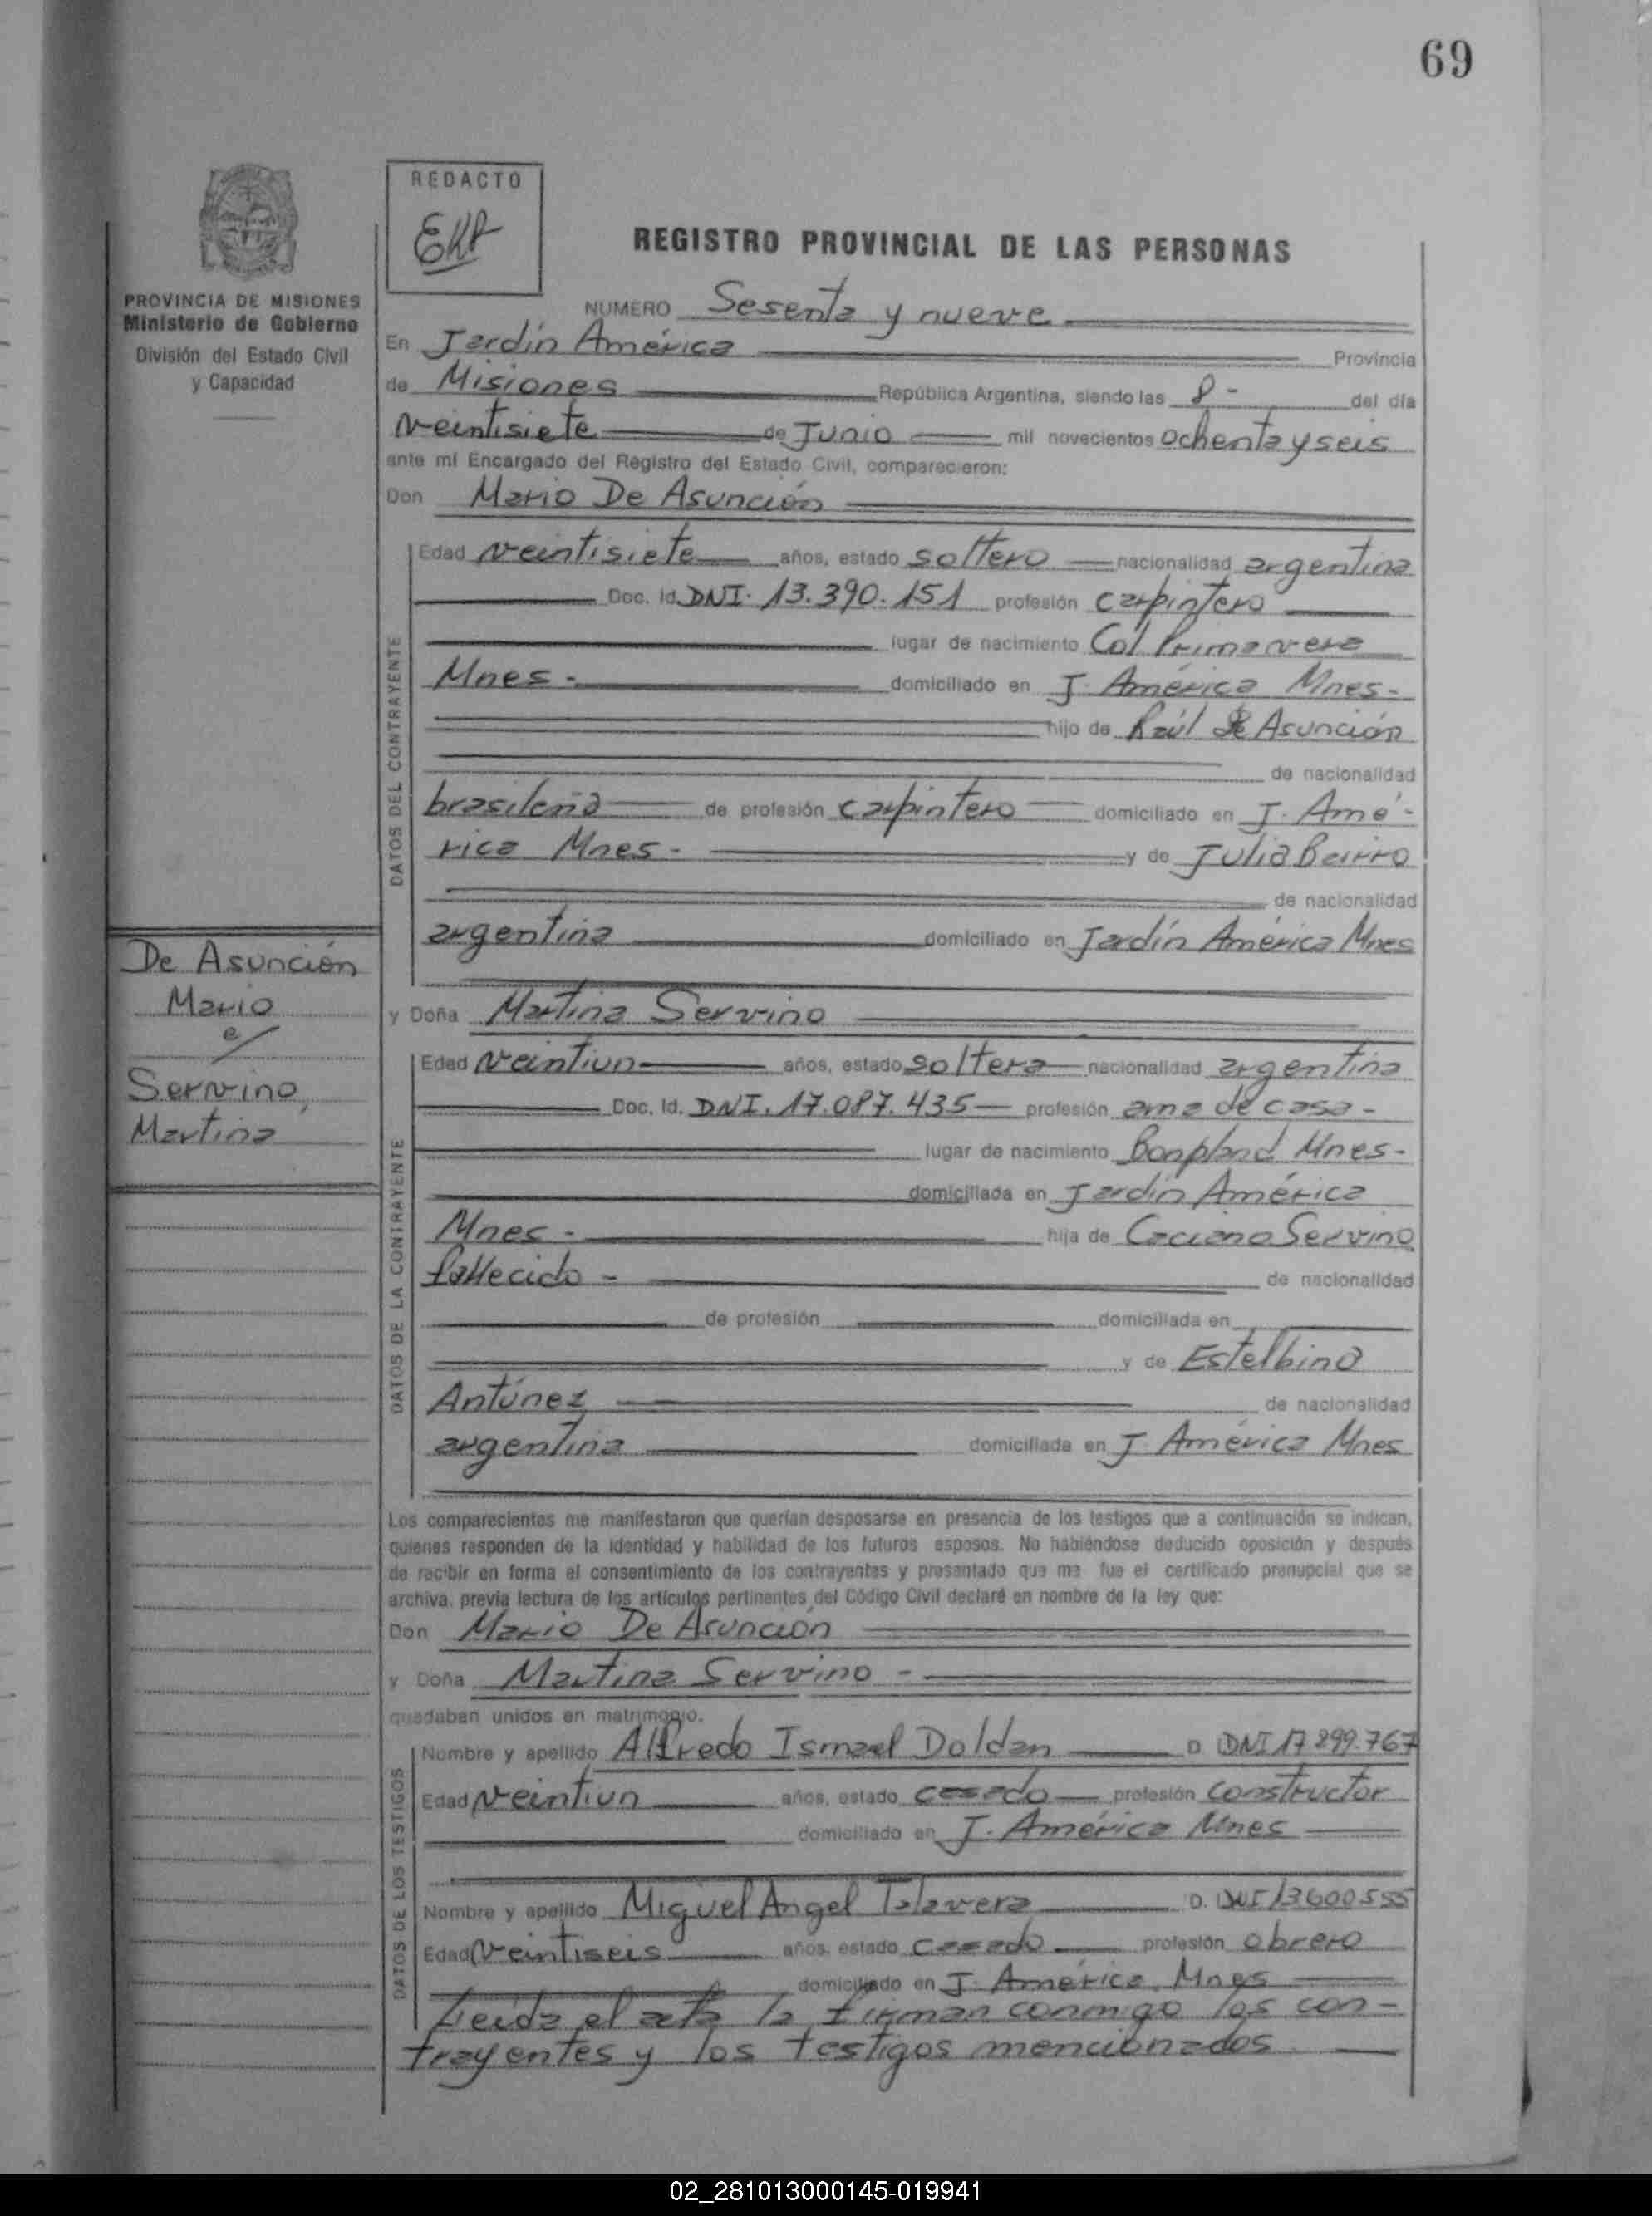 69
REDACTO
REGISTRO PROVINCIAL DE LAS PERSONAS
PROVINCIA DE MISIONES
Ministerio de Gobierno
División del Estado Civil
y Capacidad
NUMERO Sesenta y nueve
En Jardín América Provincia
de Misiones República Argentina, siendo las 8 - del día
veintisiete de Junio mil novecientos ochenta y seis
ante mí Encargado del Registro del Estado Civil, comparecieron:
Don Mario De Asunción
DATOS DEL CONTRAYENTE
Edad veintisiete años, estado soltero nacionalidad argentina
Doc. Id. DNI. 13.390.151 profesión carpintero
lugar de nacimiento Col Primavera
Mnes - domiciliado en J. América Mnes -
hijo de Raúl de Asunción
de nacionalidad
brasileña de profesión carpintero domiciliado en J. Amé -
rica Mnes - y de Julia
de nacionalidad
argentina domiciliado en Jardín América Mnes
De Asunción
Mario
e/
Servino,
Martina
y Doña Martina Servino
DATOS DE LA CONTRAYENTE
Edad veintiun años, estado soltera nacionalidad argentina
Doc. Id. DNI. 17.087.435 profesión ama de casa -
lugar de nacimiento Bonpland Mnes -
domiciliada en Jardín América
Mnes - hija de Servino
fallecido - de nacionalidad
de profesión domiciliada en
y de Estelbina
Antúnez de nacionalidad
argentina domiciliada en J. América Mnes
Los comparecientes me manifestaron que querían desposarse en presencia de los testigos que a continuación se indican,
quienes responden de la identidad y habilidad de los futuros esposos. No habiéndose deducido oposición y después
de recibir en forma el consentimiento de los contrayentes y presentado que me fue el certificado prenupcial que se
archiva, previa lectura de los artículos pertinentes del Código Civil declaré en nombre de la ley que:
Don Mario De Asunción
y Doña Martina Servino -
quedaban unidos en matrimonio.
DATOS DE LOS TESTIGOS
Nombre y apellido Alfredo Ismael Doldan D DNI 17 899.767
Edad veintiun años, estado casado profesión constructor
domiciliado en J. América Mnes
Nombre y apellido Miguel Angel Talavera D. DNI 13600555
Edad veintiseis años, estado casado profesión obrero
domiciliado en J. América Mnes
Leida el acta la firman conmigo los con -
trayentes y los testigos mencionados
02_281013000145-019941